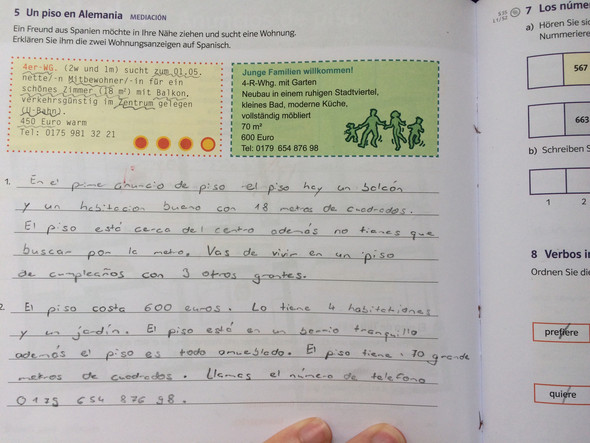 5 Un piso en Alemania MEDIACIÓN
Ein Freund aus Spanien möchte in Ihre Nähe ziehen und sucht eine Wohnung.
Erklären Sie ihm die zwei Wohnungsanzeigen auf Spanisch.
4er-WG. (2w und 1m) sucht zum 01.05.
nette/-n Mitbewohner/-in für ein
schönes Zimmer (18 m²) mit Balkon,
verkehrsgünstig im Zentrum gelegen
(U-Bahn).
450 Euro warm
Tel: 0175 981 32 21
Junge Familien willkommen!
4-R-Whg. mit Garten
Neubau in einem ruhigen Stadtviertel,
kleines Bad, moderne Küche,
vollständig möbliert
70 m²
600 Euro
Tel: 0179 654 876 98
1. En el prime anuncio de piso el piso hay un balcón
y un habitacion bueno con 18 metros de cuadrados.
El piso está cerca del centro además no tienes que
buscar por le metro. Vas de vivir en un piso
de cumpleaños con 3 otros grantes.
2 El piso costa 600 euros. Lo tiene 4 habitationes
y un jardín. El piso está en un barrio tranquillo
además el piso es todo amueblado. El piso tiene 70 grande
metros de cuadrados. Llamas el número de telefono
0179 654 876 98.
7 Los núme
a) Hören Sie sic
Nummeriere
567
663
b) Schreiben S
1 2
8 Verbos i
Ordnen Sie die
prefiere
quiere